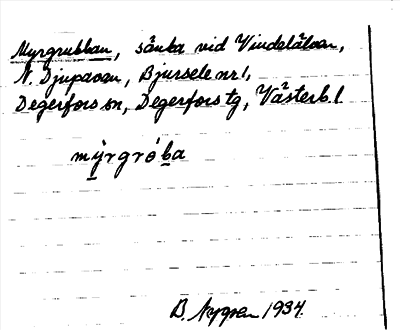 Myrgrubban, sänka vid Vindelälven,
N. Djupåsen, Bjursele nr 1,
Degerfors sn, Degerfors tg, Västerb. l.
mỳrgróba
B. Nygren 1934.